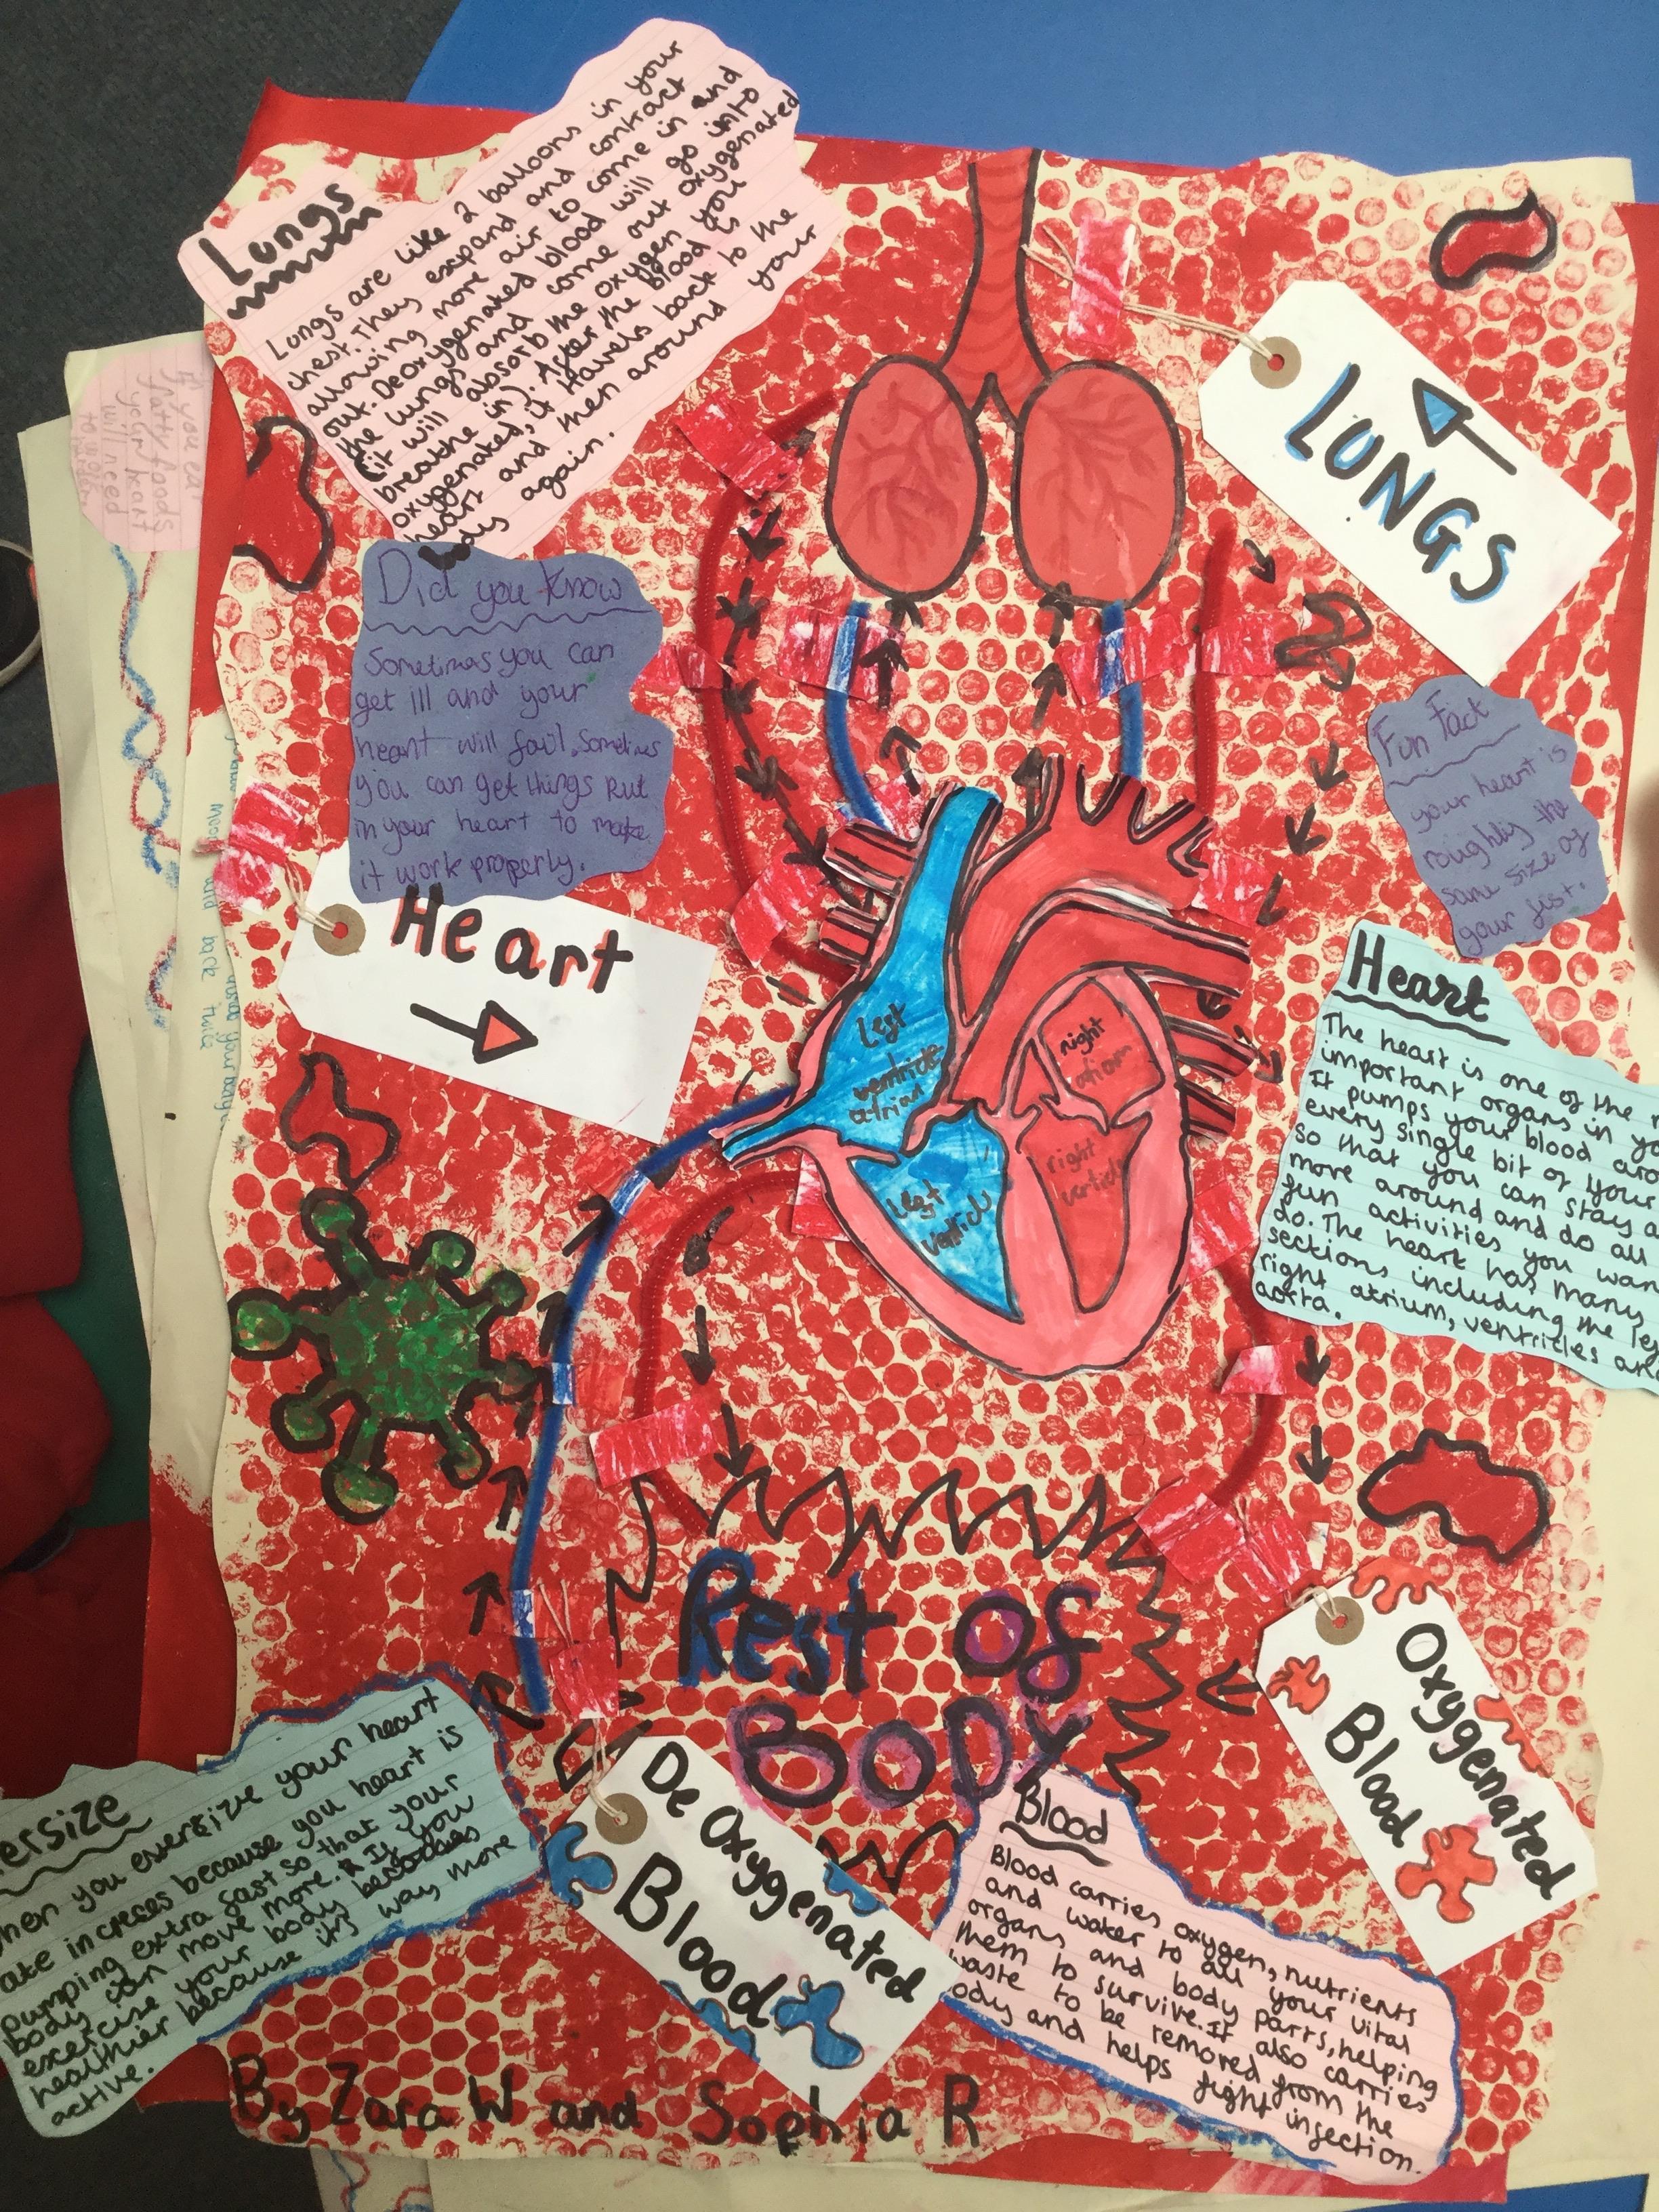 Lungs
Lungs are like 2 balloons in your
chest. They expand and contract
allowing more air to come in and
out. Deoxygenated blood will go into
the lungs and come out oxygenated
(it will absorb the oxygen you
breathe in). After the blood is
oxygenated, it travels back to the
heart and then around your
body again.
LUNGS
If you eat
fatty foods
your heart
will need
to work
Did you know
Sometimes you can
get ill and your
heart will fail. Sometimes
you can get things put
in your heart to make
it work properly.
Fun Fact
your heart is
roughly the
same size of
your fist.
Heart
Heart
The heart is one of the
important organs in
It pumps your blood
every single bit of your
so that you can stay
move around and do all
fun activities you
do. The heart has many
sections including the
right atrium, ventricles
aorta.
moon and back twice
Left
ventricle
atriad
right
atiom
Left
ventricle
right
verticle
Rest of
BODY
Oxygenated
Blood
De Oxygenated
Blood
ersize
hen you exersize your heart
ate increses because you heart is
pumping extra fast so that your
body can move more. If you
excercise your body becomes
healthier because it's way more
active.
Blood
Blood carries oxygen, nutrients
and water to all your vital
organs and body parts, helping
them to survive. It also carries
waste to be removed from the
ody and helps fight infection.
By Zara W and Sophia R